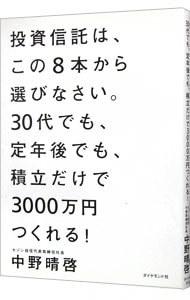 投資信託は、
この8本から
選びなさい。
30代でも、
定年後でも、
積立だけで
3000万円
つくれる!
セゾン投信代表取締役社長
中野晴啓
ダイヤモンド社
30代でも、定年後でも、積立だけで3000万円つくれる!
中野晴啓
ダイヤモンド社